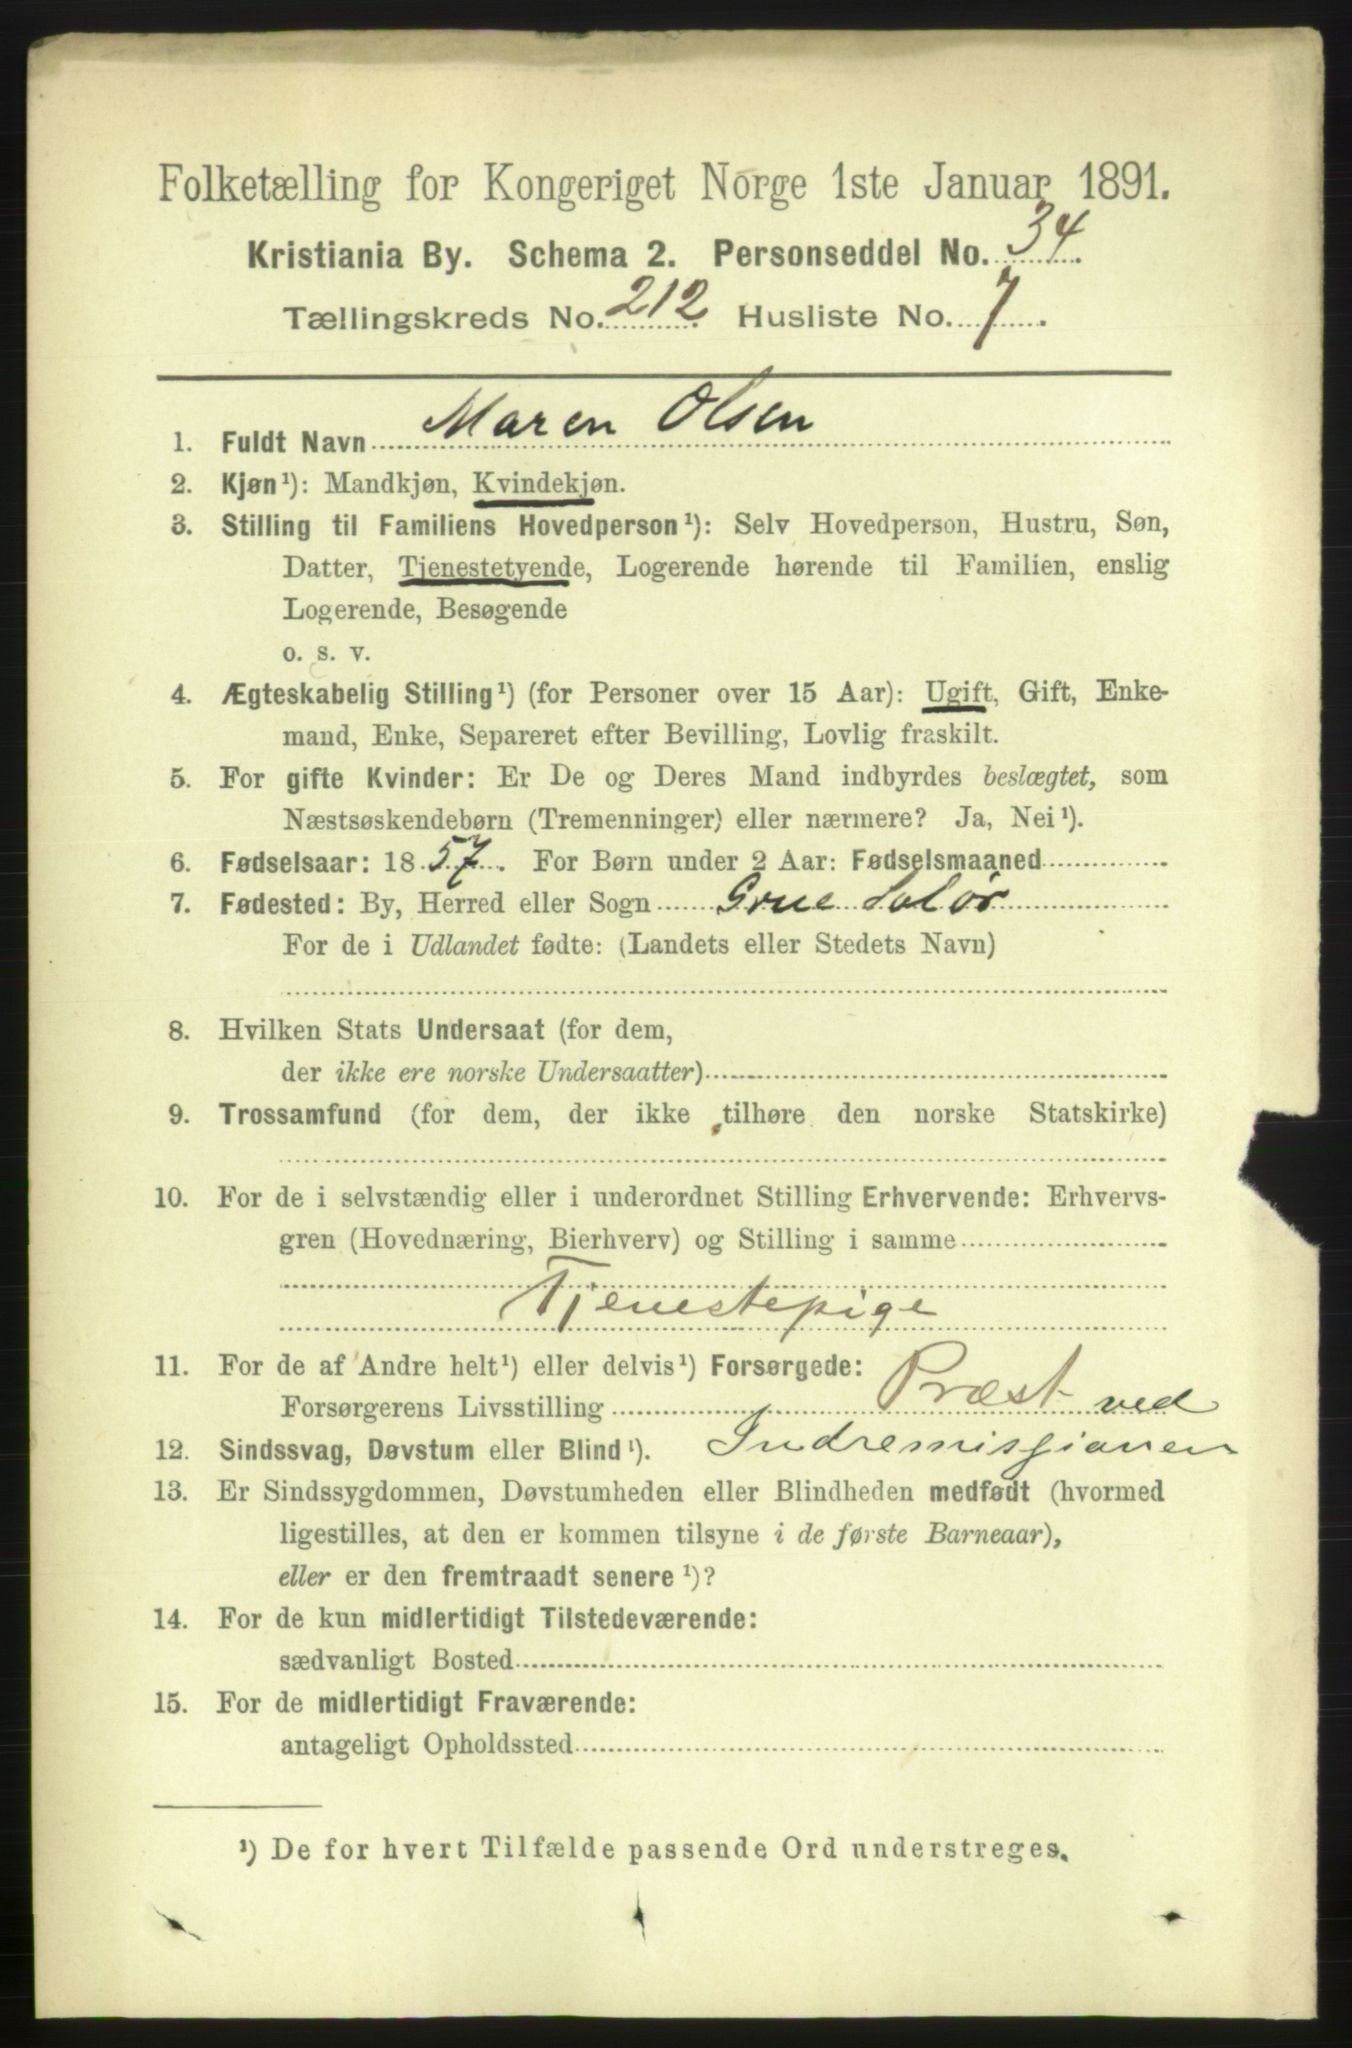 Folketælling for Kongeriget Norge 1ste Januar 1891.
Kristiania By. Schema 2. Personseddel No. 34.
Tællingskreds No. 212. Husliste No. 7.
1. Fuldt Navn Maren Olsen
2. Kjøn¹): Mandkjøn, Kvindekjøn.
3. Stilling til Familiens Hovedperson¹): Selv Hovedperson, Hustru, Søn,
Datter, Tjenestetyende, Logerende hørende til Familien, enslig
Logerende, Besøgende
o. s. v.
4. Ægteskabelig Stilling¹) (for Personer over 15 Aar): Ugift, Gift, Enke-
mand, Enke, Separeret efter Bevilling, Lovlig fraskilt.
5. For gifte Kvinder: Er De og Deres Mand indbyrdes beslægtet, som
Næstsøskendebørn (Tremenninger) eller nærmere? Ja, Nei¹).
6. Fødselsaar: 1857. For Børn under 2 Aar: Fødselsmaaned
7. Fødested: By, Herred eller Sogn Grue Solør
For de i Udlandet fødte: (Landets eller Stedets Navn)
8. Hvilken Stats Undersaat (for dem,
der ikke ere norske Undersaatter)
9. Trossamfund (for dem, der ikke tilhøre den norske Statskirke)
10. For de i selvstændig eller i underordnet Stilling Erhvervende: Erhvervs-
gren (Hovednæring, Bierhverv) og Stilling i samme
Tjenestepige
11. For de af Andre helt¹) eller delvis¹) Forsørgede:
Forsørgerens Livsstilling Præst ved
12. Sindssvag, Døvstum eller Blind¹). Indremisjionen
13. Er Sindssygdommen, Døvstumheden eller Blindheden medfødt (hvormed
ligestilles, at den er kommen tilsyne i de første Barneaar),
eller er den fremtraadt senere¹)?
14. For de kun midlertidigt Tilstedeværende:
sædvanligt Bosted
15. For de midlertidigt Fraværende:
antageligt Opholdssted
¹) De for hvert Tilfælde passende Ord understreges.